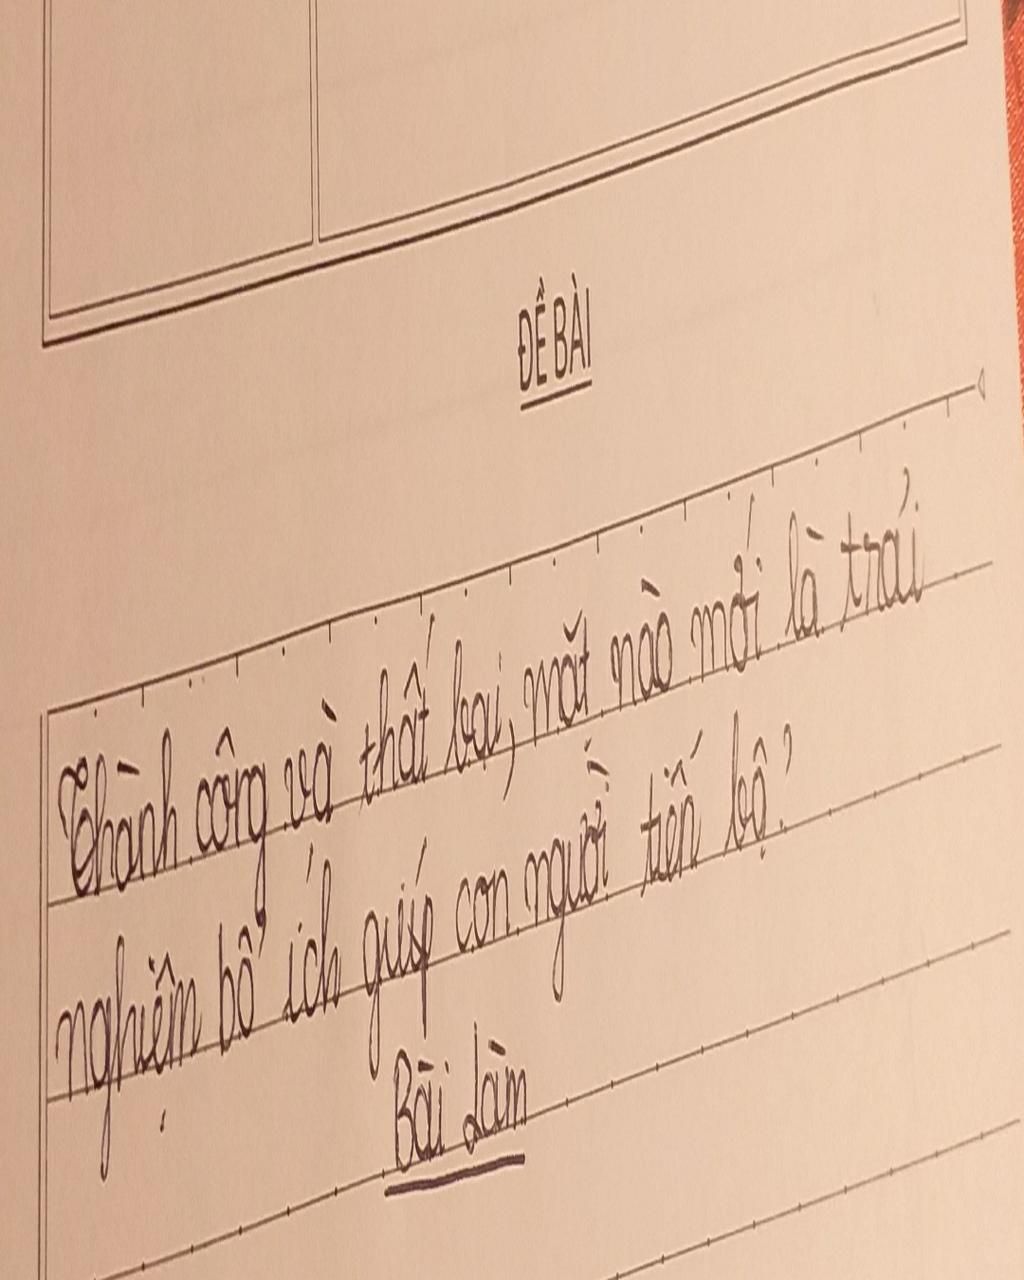 ĐỀ BÀI
Thành công và thất bại, mặt nào mới là trải
nghiệm bổ ích giúp con người tiến bộ?
Bài Làm